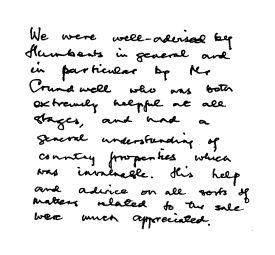 We were well-advised by
Humberts in general and
in particular by Mr
Crundwell who was both
extremely helpful at all
stages, and had a
general understanding of
country properties which
was invaluable. His help
and advice on all sorts of
matters related to the sale
were much appreciated.